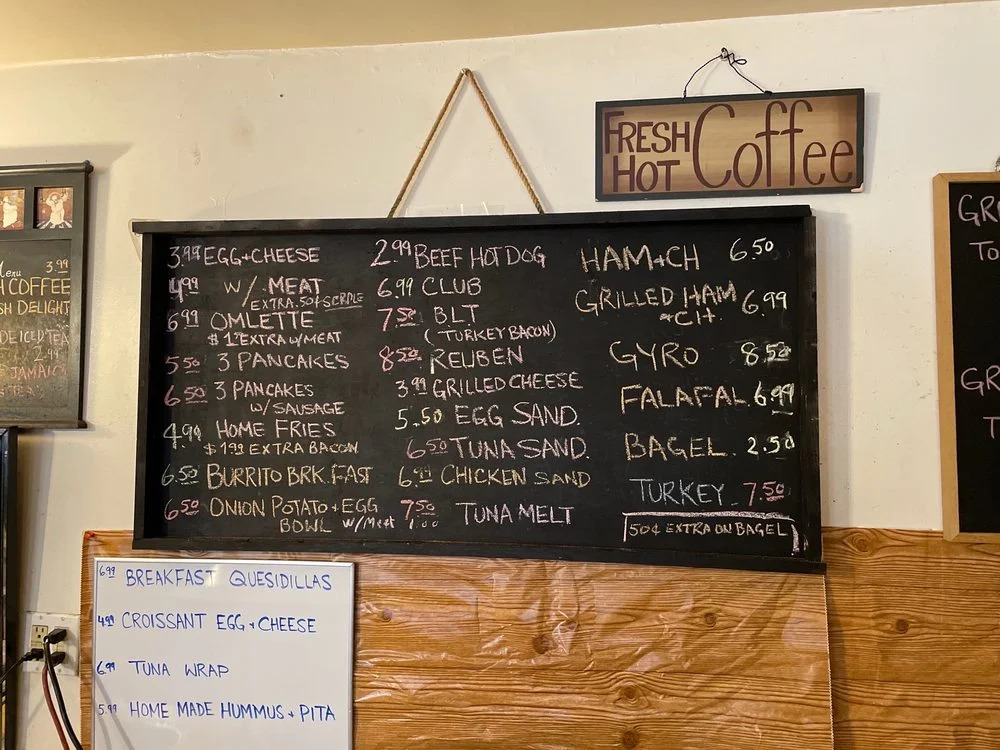 FRESH HOT Coffee
Menu 3.99
COFFEE
DELIGHT
ICED TEA
2.99
JAMAICA
3.99 EGG+CHEESE
4.99 W/ MEAT
EXTRA .50¢ SCRPLE
6.99 OMLETTE
EXTRA W/MEAT
5.50 3 PANCAKES
6.50 3 PANCAKES
W/ SAUSAGE
4.99 HOME FRIES
$1.99 EXTRA BACON
6.50 BURRITO BRK. FAST
6.50 ONION POTATO + EGG
BOWL W/Meat 1.00
2.99 BEEF HOT DOG
6.99 CLUB
7.50 BLT
(TURKEY BACON)
8.50 REUBEN
3.99 GRILLED CHEESE
5.50 EGG SAND.
6.50 TUNA SAND.
6.99 CHICKEN SAND
7.50 TUNA MELT
HAM+CH 6.50
GRILLED HAM 6.99
+CH.
GYRO 8.50
FALAFAL 6.99
BAGEL. 2.50
TURKEY 7.50
50¢ EXTRA ON BAGEL
6.99 BREAKFAST QUESIDILLAS
4.99 CROISSANT EGG + CHEESE
6.99 TUNA WRAP
5.99 HOME MADE HUMMUS + PITA